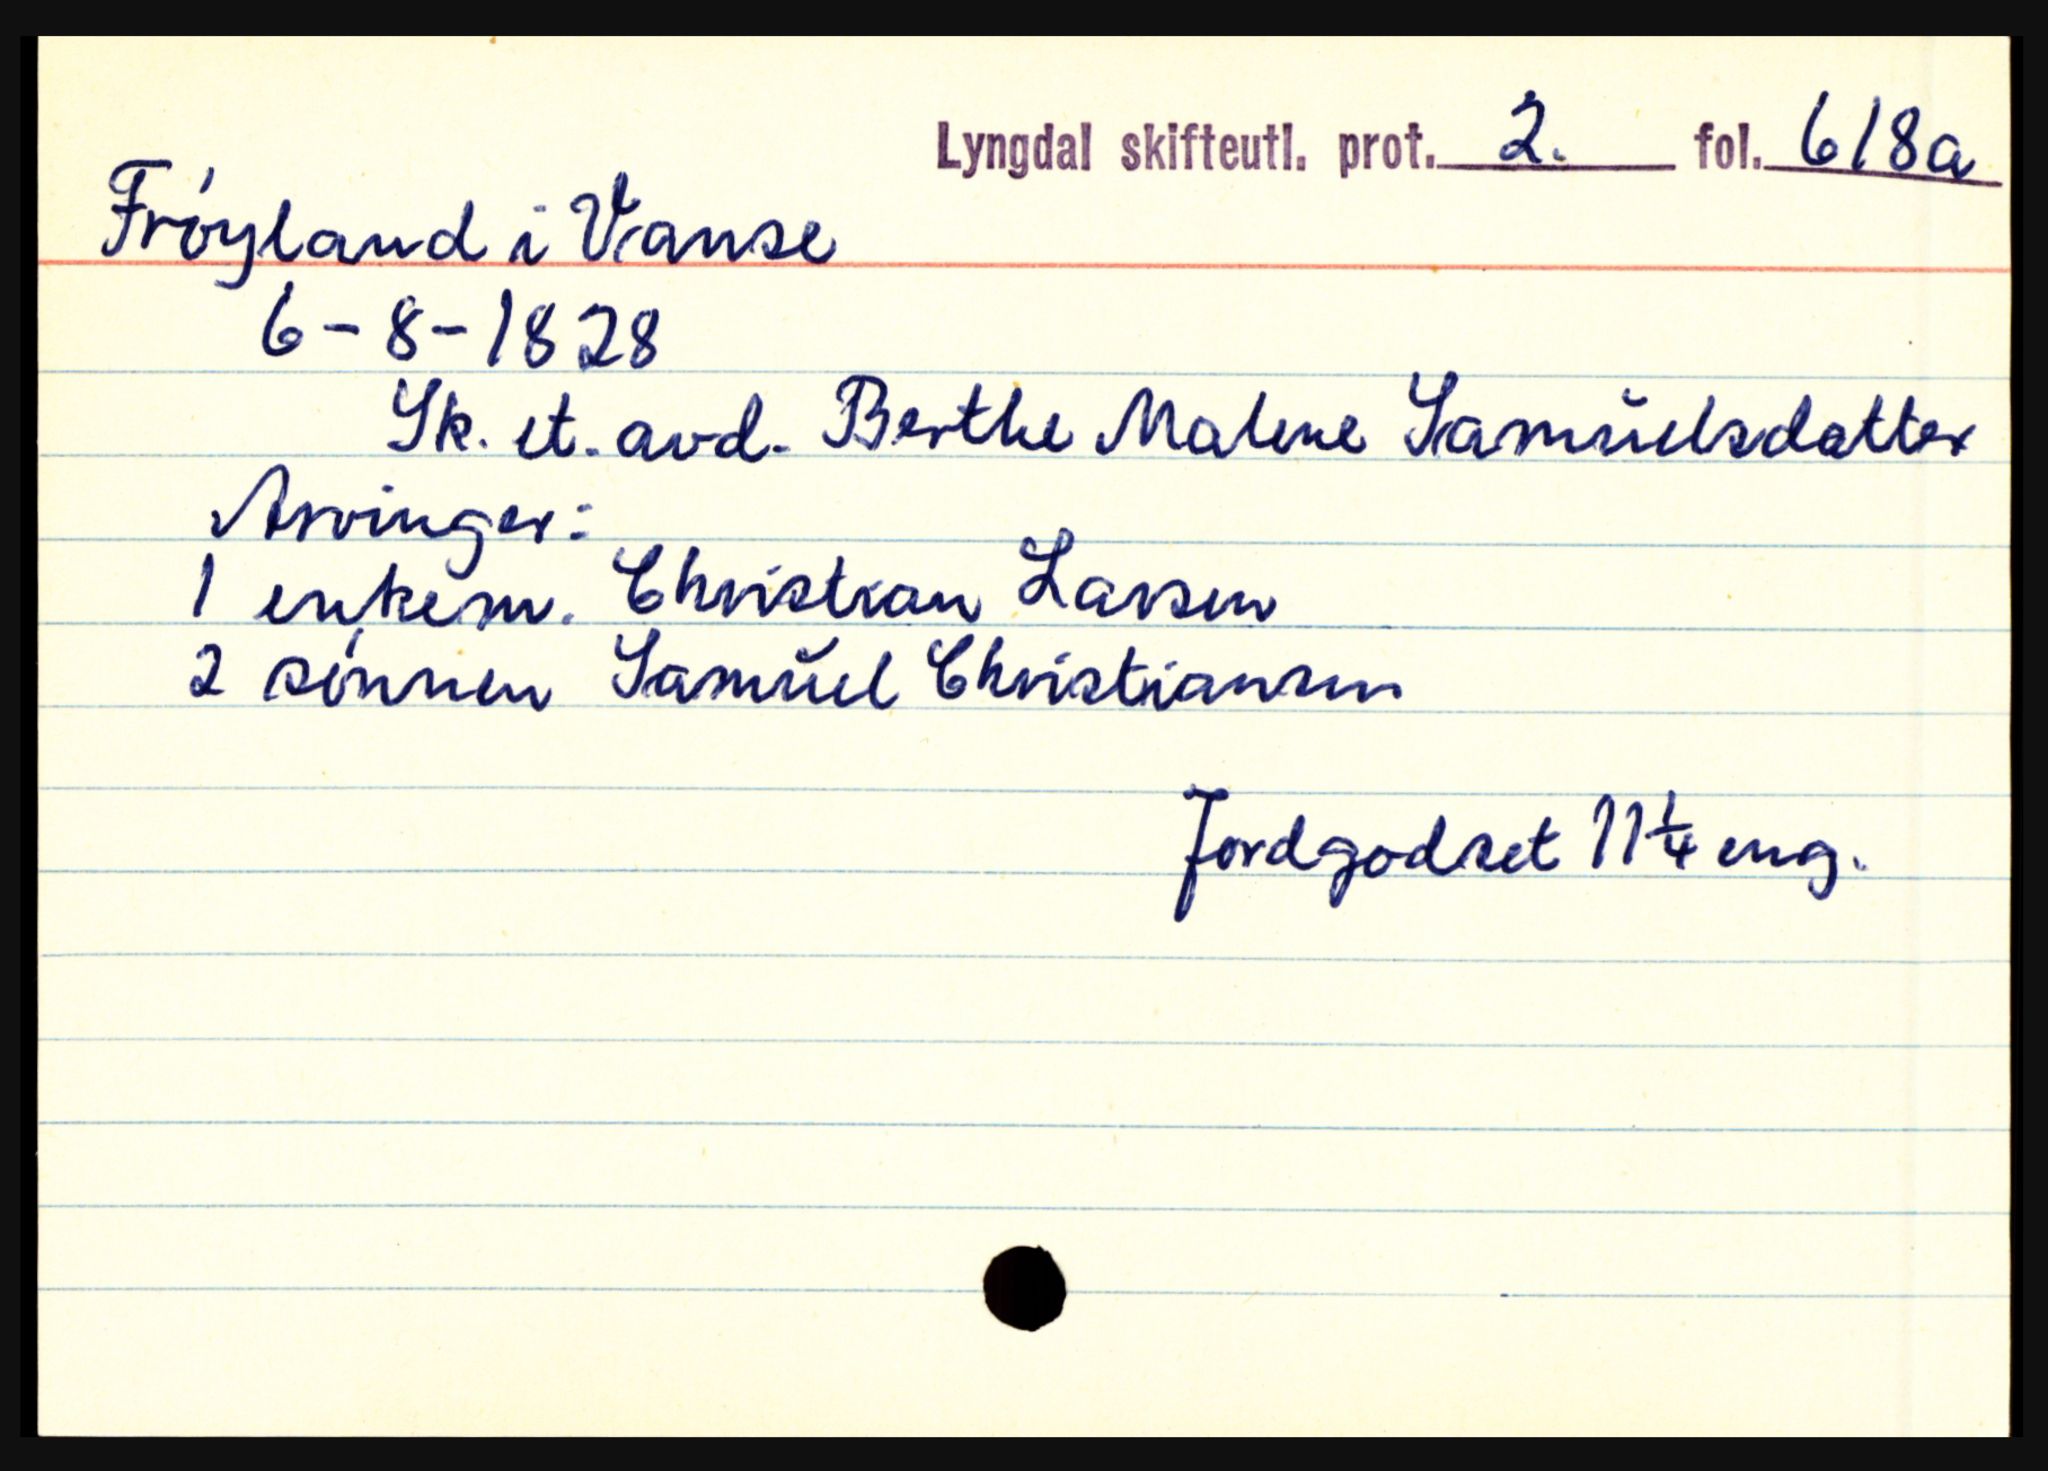 Lyngdal skifteutl. prot. 2. fol. 618a
Frøyland i Vanse
6-8-1828
Sk. et. avd. Berthe Malene Samuelsdatter
Arvinger:
1 enkem. Christian Larsen
2 sønnen Samuel Christiansen
Jordgodset 11 1/4 eng.